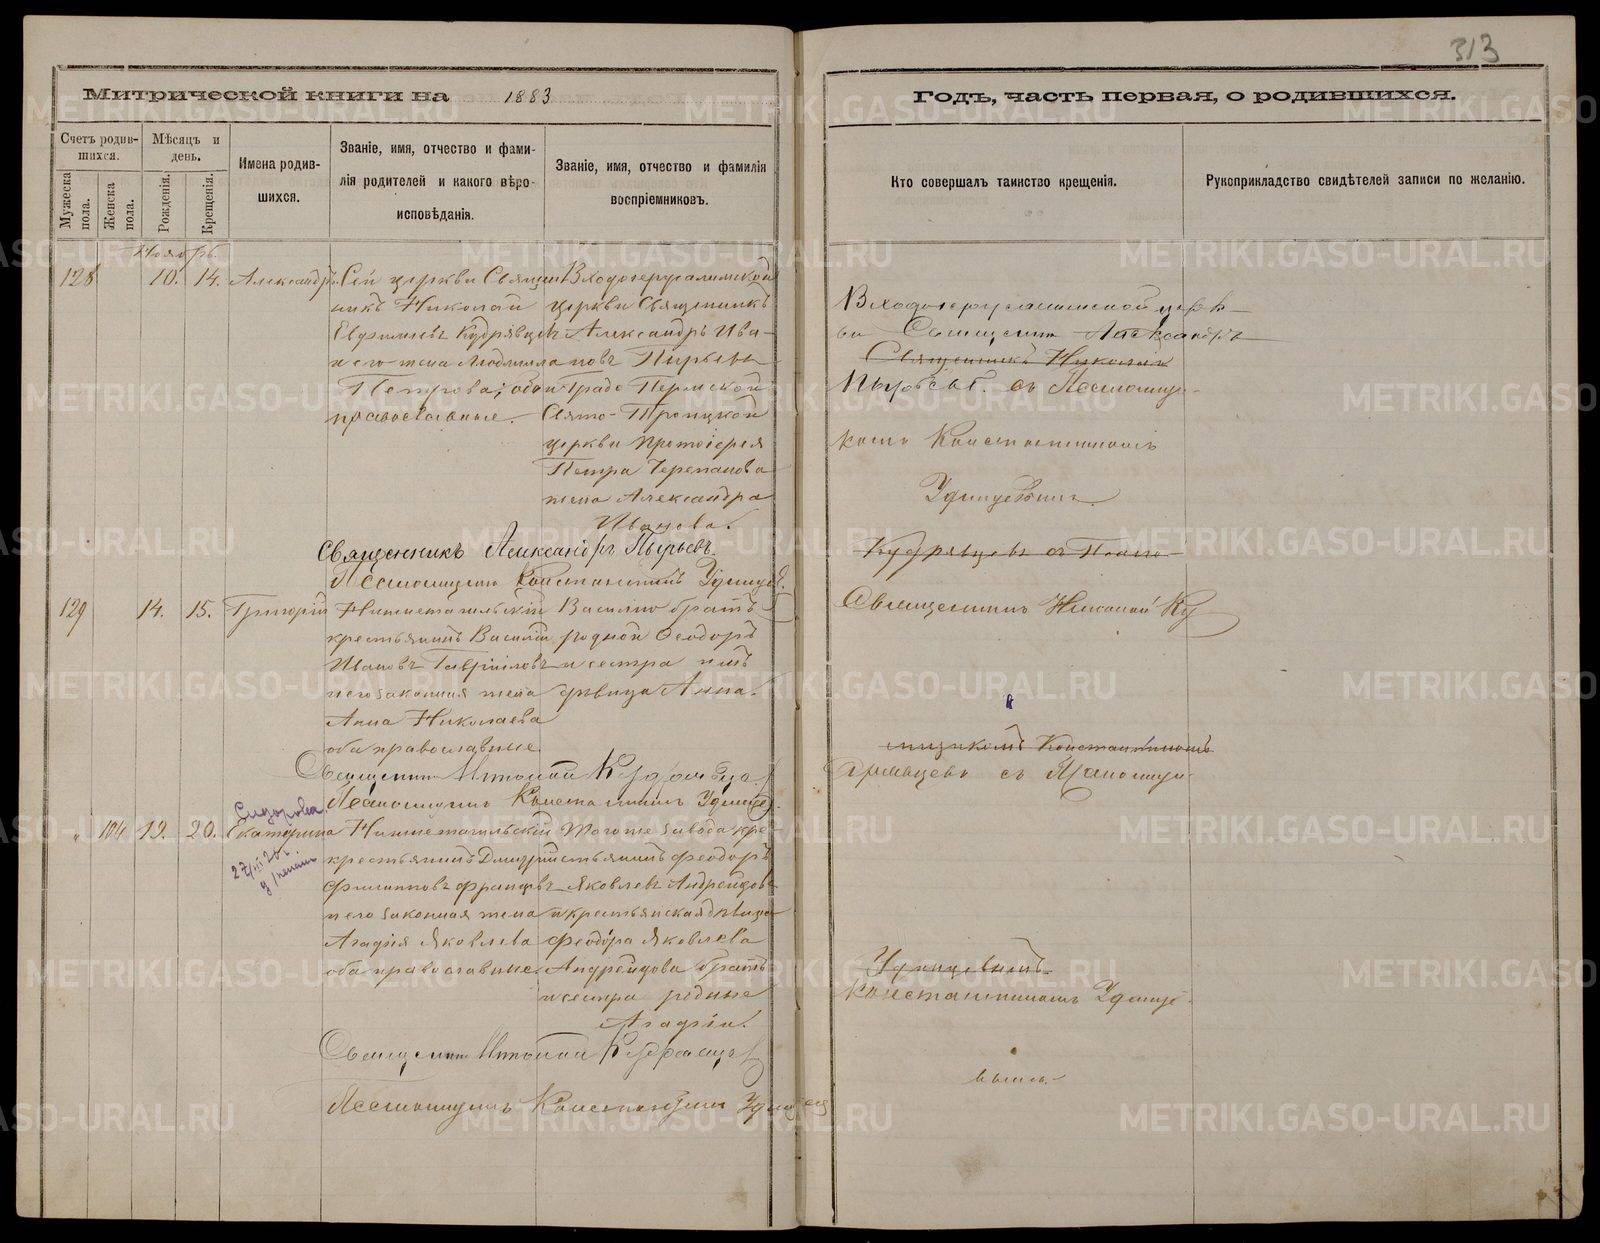 313
Митрической книги на 1883
Годъ, часть первая, о родившихся.
Счетъ родив-
шихся.
Мѣсяцъ и
день.
Имена родив-
шихся.
Званіе, имя, отчество и фами-
лія родителей и какого вѣро-
исповѣданія.
Званіе, имя, отчество и фамилія
воспріемниковъ.
Кто совершалъ таинство крещенія.
Рукоприкладство свидѣтелей записи по желанію.
Мужеска
пола.
Женска
пола.
Рожденія.
Крещенія.
Ноябрь.
128 10. 14. Александръ
Сей церкви Священ
никъ Николай
Евфимиевъ Кудрявцевъ
и его жена Людмилла
Петрова; оба
православные.
Входоіерусалимской
церкви Священникъ
Александръ Ива-
новъ Пырьевъ
и Градо Пермской
Свято-Троицкой
церкви Протоіерея
Петра Черепанова
жена Александра
Иванова.
Входоіерусалимской церк-
ви Священник Александръ
Священникъ Николай
Пырьевъ съ Псаломщи-
комъ Константиномъ
Удинцевымъ
Кудрявцевъ съ Псало-
Священникъ Александръ Пырьевъ
Псаломщикъ Константинъ Удинцев.
129 14. 15. Григорій
Нижнетагильскій
крестьянинъ Василій
Ивановъ Гавриловъ
и его законная жена
Анна Николаева
оба православные.
Василію братъ
родной Феодоръ
и сестра имъ
дѣвица Анна.
Священникъ Николай Ку
мщикомъ Константиномъ
дрявцевъ съ Псаломщи-
Священникъ Николай Кудрявцев
Псаломщикъ Константинъ Удинцев
Сидорова
" 104 19. 20. Екатерина
Нижнетагильскій
крестьянинъ Дмитрій
Филипповъ Францевъ
и его законная жена
Агафія Яковлева
оба православные.
Того же завода кре-
стьянинъ Феодоръ
Яковлевъ Андрейцовъ
и крестьянская дѣвица
Феодора Яковлева
Андрейцова братъ
и сестра родные
Агафіи.
Удинцевымъ
Константиномъ Удинце-
вымъ.
Священникъ Николай Кудрявцев
Псаломщикъ Константинъ Удинцев
METRIKI.GASO-URAL.RU